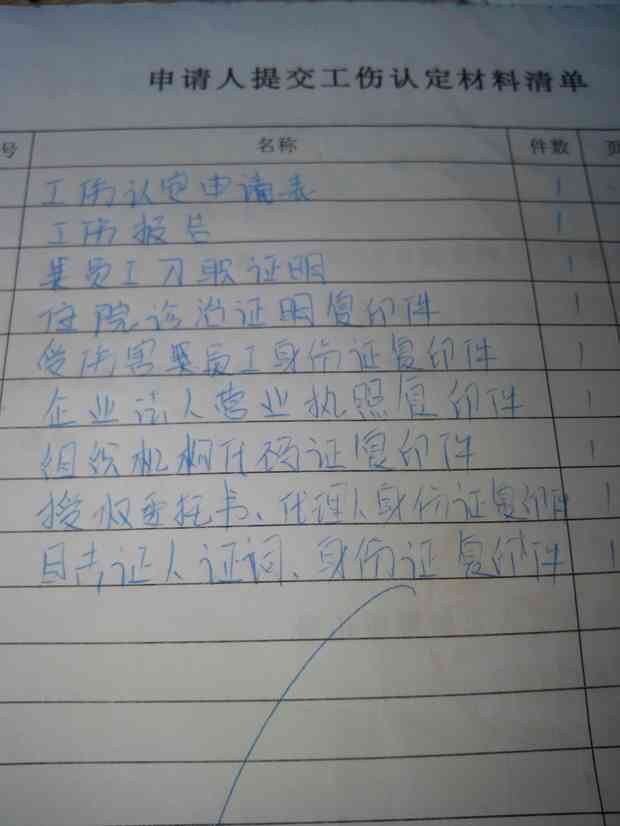 申请人提交工伤认定材料清单
号 名称 件数 页
工伤认定申请表 1
工伤报告 1
某员工入职证明 1
住院诊治证明复印件 1
受伤害某员工身份证复印件 1
企业法人营业执照复印件 1
组织机构代码证复印件 1
授权委托书、代理人身份证复印件 1
目击证人证词、身份证复印件 1